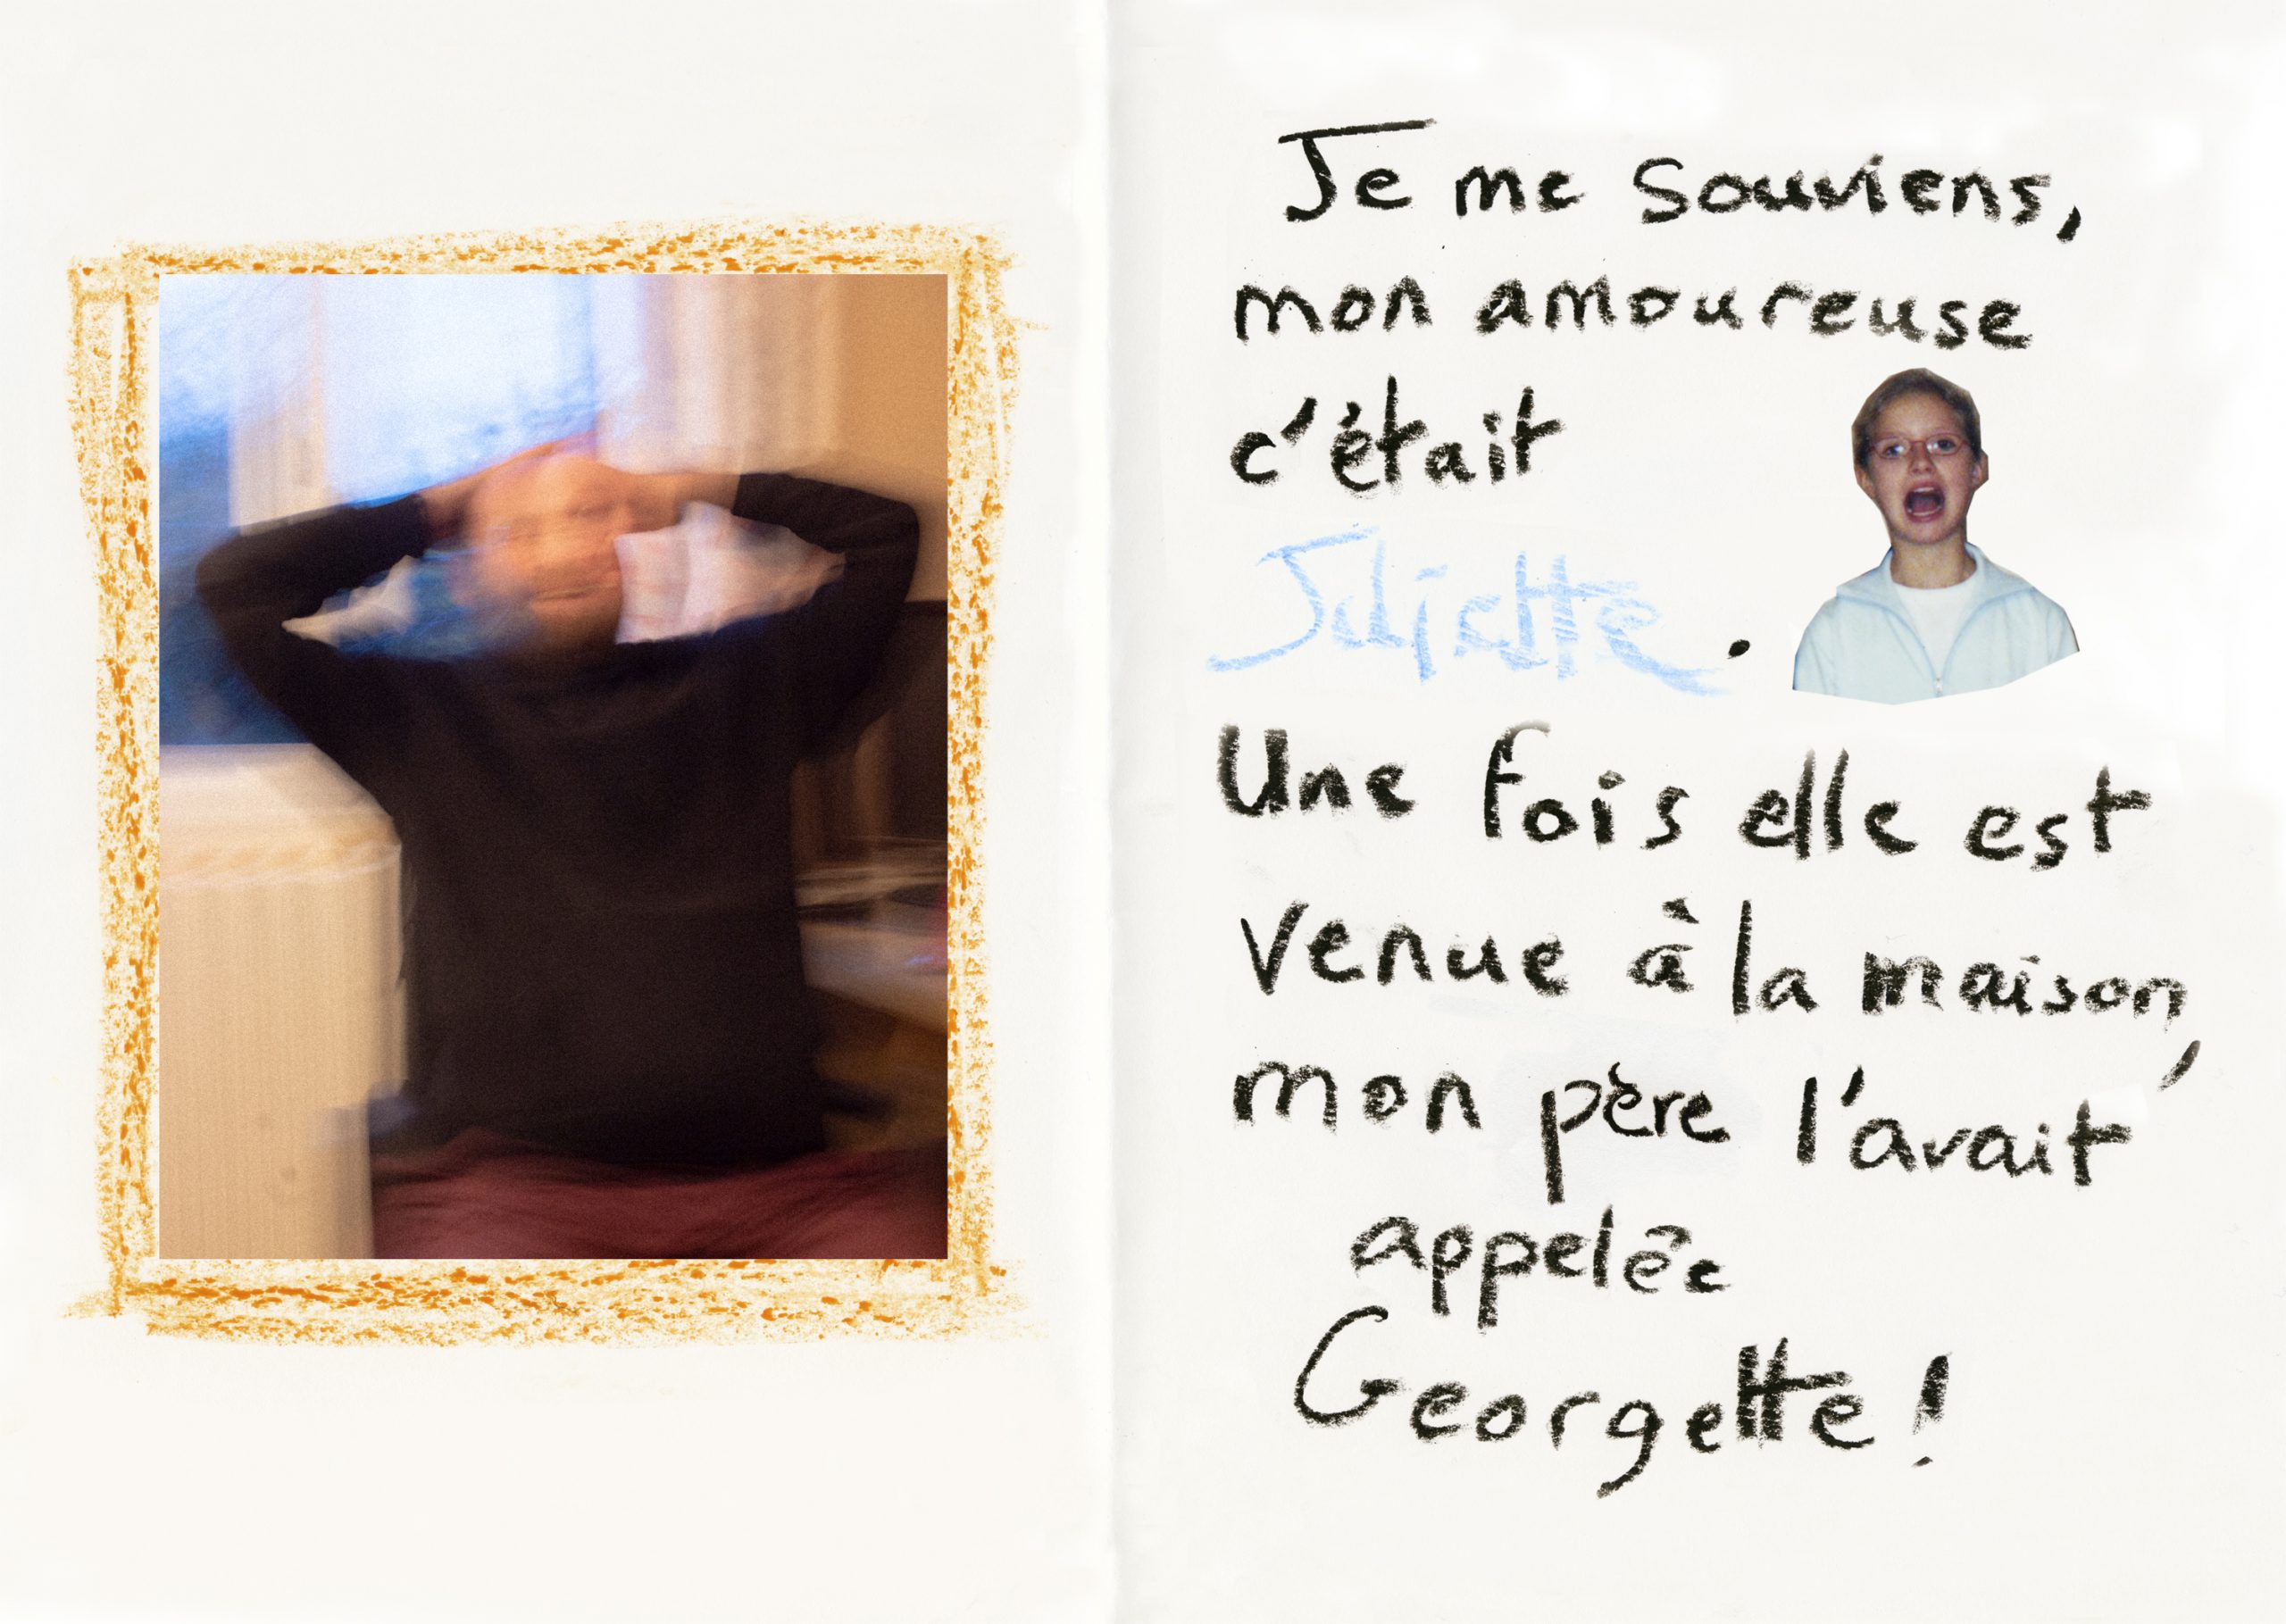 Je me souviens,
mon amoureuse
c'était
Juliette.
Une fois elle est
venue à la maison,
mon père l'avait
appelée
Georgette !